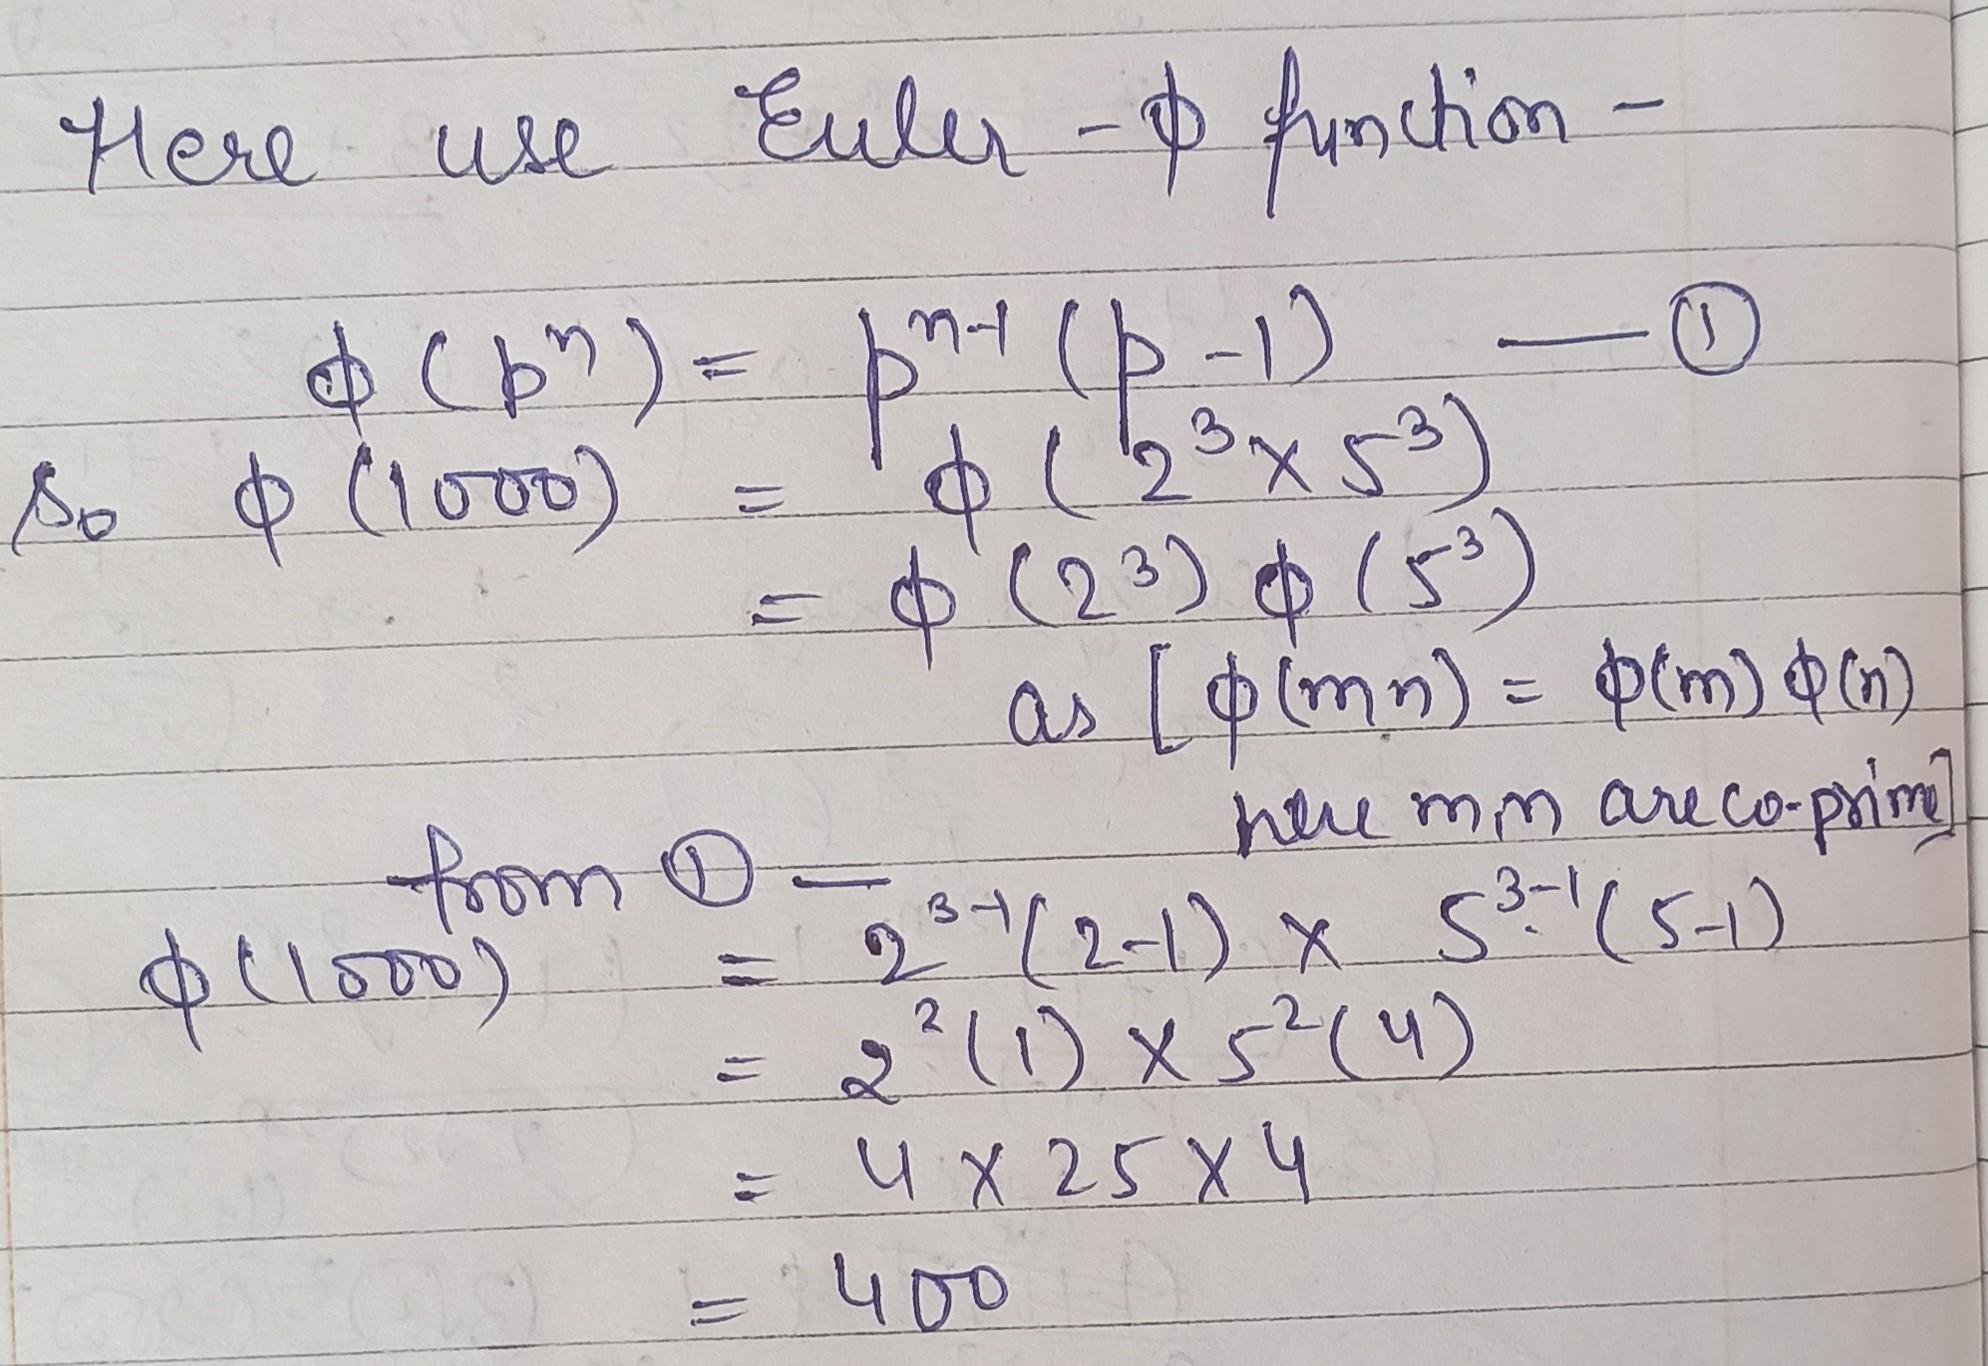 Here use Euler - ϕ function -
ϕ(pⁿ) = pⁿ⁻¹(p-1) — ①
So ϕ(1000) = ϕ(2³×5³)
= ϕ(2³) ϕ(5³)
as [ϕ(mn) = ϕ(m) ϕ(n)
here m n are co-prime]
from ① —
ϕ(1000) = 2³⁻¹(2-1) × 5³⁻¹(5-1)
= 2²(1) × 5²(4)
= 4 × 25 × 4
= 400